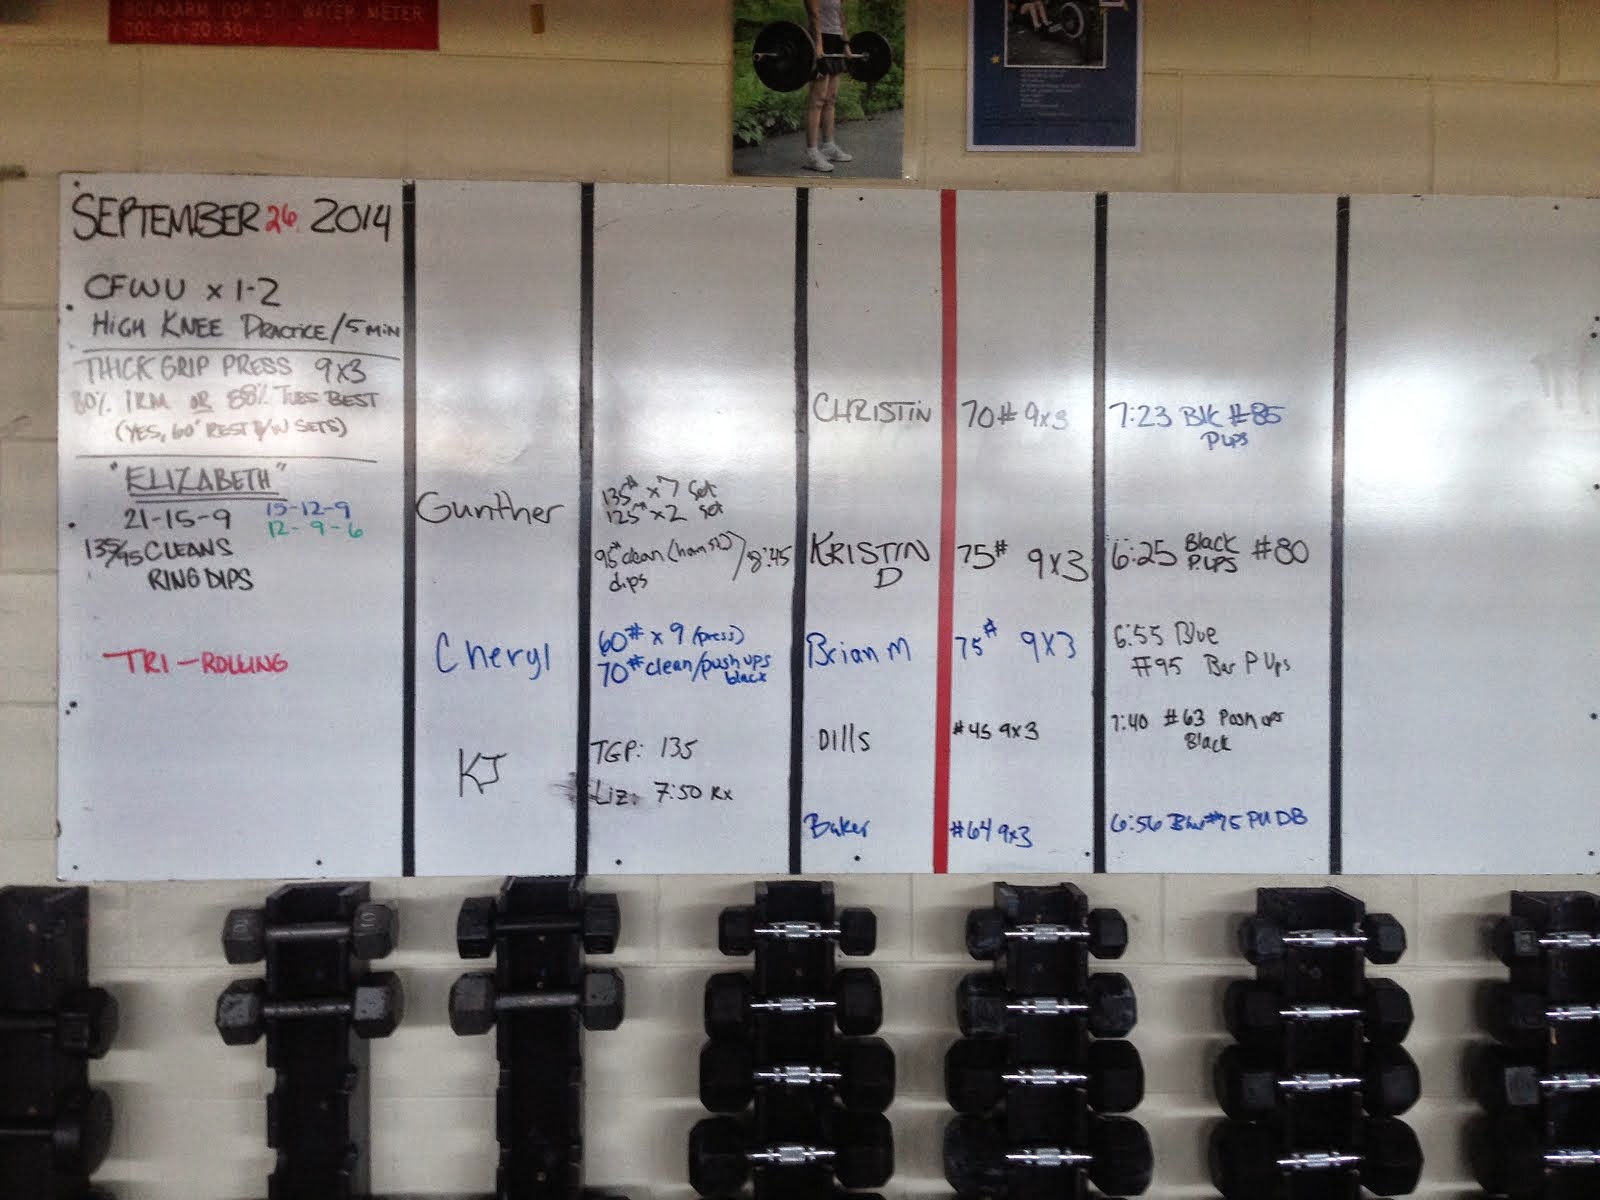 WATER METER
SEPTEMBER 26, 2014
CFWU x 1-2
HIGH KNEE PRACTICE/5 MIN
THICK GRIP PRESS 9x3
80% 1RM OR 88% TUES BEST
(YES, 60" REST B/W SETS)
"ELIZABETH"
21-15-9 15-12-9
12-9-6
135/95 CLEANS
RING DIPS
TRI-ROLLING
Gunther
135# x 7 set
125# x 2 set
95# clean
dips
8:45
Cheryl
60# x 9 (press)
70# clean/push ups
black
KJ
TGP: 135
Liz: 7:50 Rx
CHRISTIN 70# 9x3 7:23 Blk #85
Pups
KRISTIN
D
75# 9x3 6:25 Black
P.UPS #80
Brian M 75# 9x3 6:55 Blue
#95 Bar P Ups
Dills #45 9x3 7:40 #63 Push ups
Black
Baker #64 9x3 6:56 #75 PU DB
10